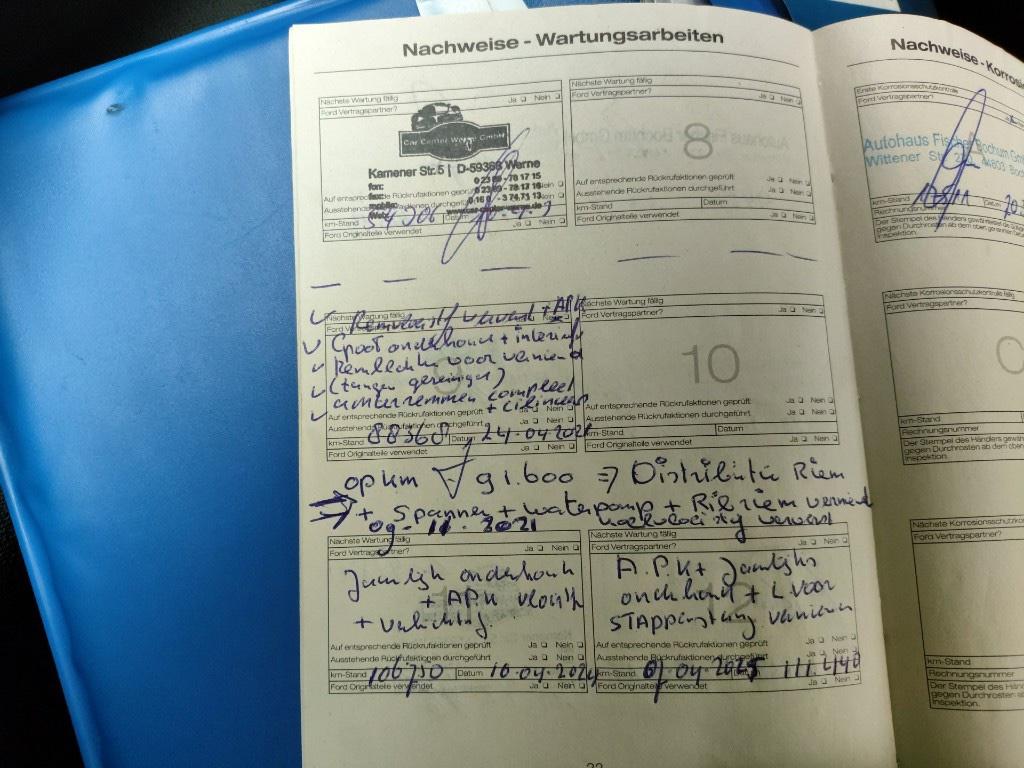 Nachweise - Wartungsarbeiten
Nächste Wartung fällig
Ford Vertragspartner? Ja Nein
Car Center Werne GmbH
Kamener Str. 5 | D-59368 Werne
fon: 0 23 89 - 78 17 15
fax: 0 23 89 - 78 17 16
mobile:
Auf entsprechende Rückrufaktionen geprüft
Ausstehende Rückrufaktionen durchgeführt
km-Stand Datum
Ford Originalteile verwendet
Nächste Wartung fällig
Ford Vertragspartner? Ja Nein
8
Auf entsprechende Rückrufaktionen geprüft Ja Nein
Ausstehende Rückrufaktionen durchgeführt Ja Nein
km-Stand Datum
Ford Originalteile verwendet Ja Nein
Nächste Wartung fällig
+ APK
Groot onderhoud + interieur
voor vernieuwd
(tangen gereinigd)
achterremmen compleet
+ cilinders
Auf entsprechende Rückrufaktionen geprüft
Ausstehende Rückrufaktionen durchgeführt
km-Stand 88360 Datum 24-04-2021
Ford Originalteile verwendet Ja Nein
Nächste Wartung fällig
Ford Vertragspartner? Ja Nein
10
Auf entsprechende Rückrufaktionen geprüft Ja Nein
Ausstehende Rückrufaktionen durchgeführt Ja Nein
km-Stand Datum
Ford Originalteile verwendet Ja Nein
op km 91.600 => Distributie Riem
+ Spanner + waterpomp + Ribriem
09-11-2021
Nächste Wartung fällig
Ford Vertragspartner? Ja Nein
Jaarlijk onderhoud
+ APK
+
Auf entsprechende Rückrufaktionen geprüft Ja Nein
Ausstehende Rückrufaktionen durchgeführt Ja Nein
km-Stand 106750 Datum 10-04-2024
Ford Originalteile verwendet Ja Nein
Nächste Wartung fällig
Ford Vertragspartner? Ja Nein
A.P.K + Jaarlijks
onderhoud + L voor
Auf entsprechende Rückrufaktionen geprüft Ja Nein
Ausstehende Rückrufaktionen durchgeführt Ja Nein
km-Stand 01-04-2025 111.440
Ford Originalteile verwendet Ja Nein
Nachweise - Korrosi
Erste Korrosionsschutzkontrolle
Ford Vertragspartner?
Autohaus Fische Bochum Gm
Wittener Str. 44803 Boch
km-Stand Datum
Der Stempel des Händlers
gegen Durchrosten ab dem
Inspektion.
Nächste Korrosionsschutzkontrolle fällig
Ford Vertragspartner?
km-Stand
Rechnungsnummer
Der Stempel des Händlers gewäh
gegen Durchrosten ab dem oben
Inspektion.
Nächste Korrosionssch
Ford Vertragspartner?
km-Stand
Rechnungsnummer
Der Stempel des Händ
gegen Durchrosten ab
Inspektion.